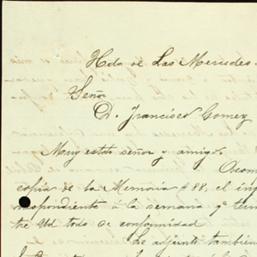 Hda de Las Mercedes
Señor
D. Francisco Gomez
Muy estdo señor y amigo.
Acom
copia de la Memoria # 88, el in
respondiente à la semana qe
tre Ud todo de conformidad
Le adjunto tambien